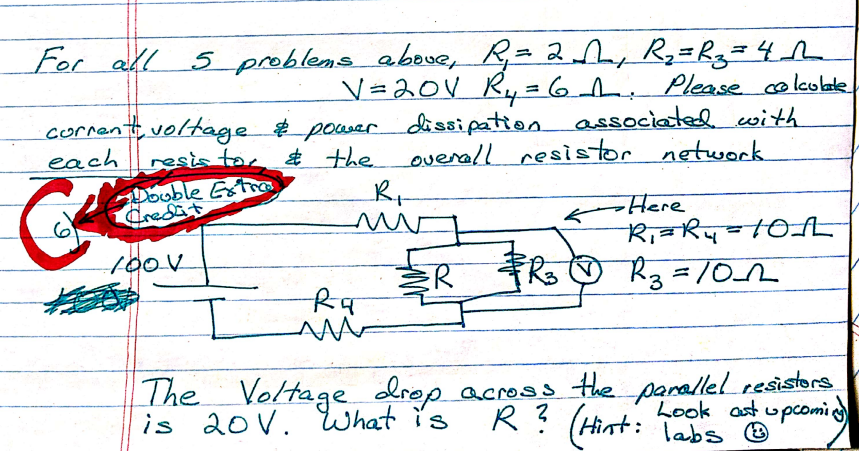 For all 5 problems above, R₁ = 2 Ω, R₂ = R₃ = 4 Ω
V = 20V R₄ = 6 Ω. Please calculate
current, voltage & power dissipation associated with
each resistor & the overall resistor network
Double Extra
Credit
6)
R₁
Here
R₁ = R₄ = 10 Ω
100 V
R
R₃
V
R₃ = 10 Ω
R₄
The Voltage drop across the parallel resistors
is 20V. What is R? (Hint: Look at upcoming
labs ☺)